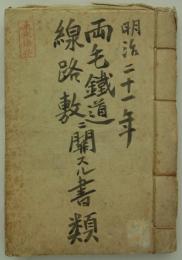 明治二十一年
両毛鐵道
線路敷ニ關スル書類